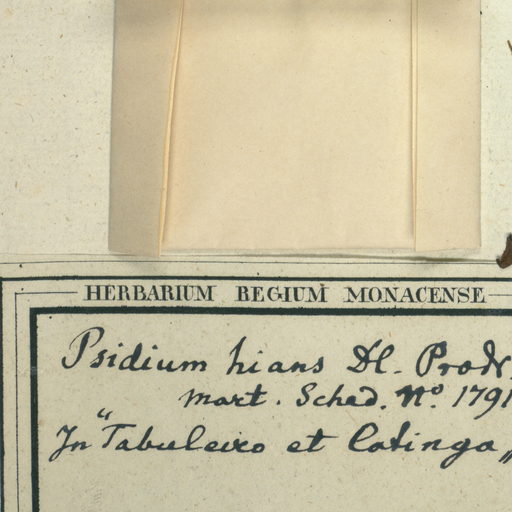 HERBARIUM REGIUM MONACENSE
Psidium hians Dl. Prodr.
Mart. Sched. No. 1791
In "Tabuleiro et Catinga"